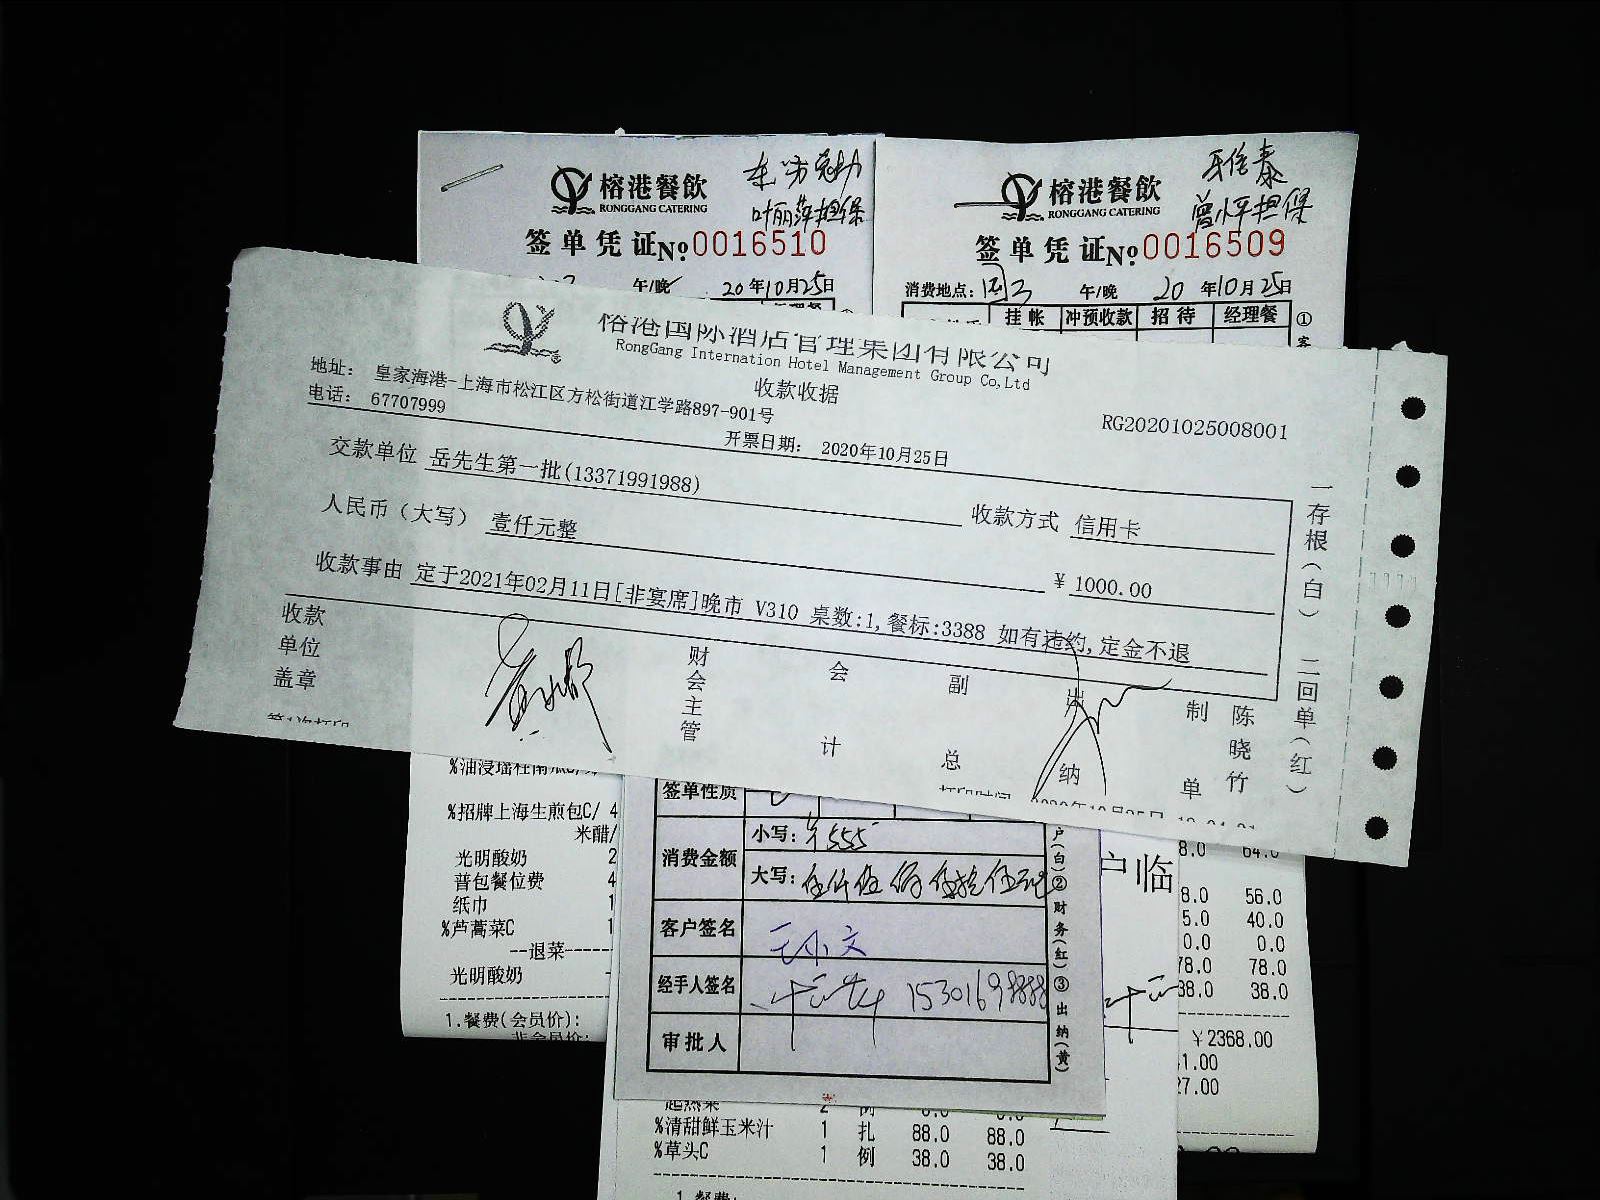 榕港餐飲
RONGGANG CATERING
叶丽萍担保
签单凭证№0016510
午/晚 20年10月25日
榕港餐飲
RONGGANG CATERING
曾小平担保
签单凭证№0016509
消费地点: 午/晚 20年10月25日
挂帐 冲预收款 招待 经理餐
①
客
榕港国际酒店管理集团有限公司
RongGang Internation Hotel Management Group Co,Ltd
收款收据
地址: 皇家海港-上海市松江区方松街道江学路897-901号
电话: 67707999
RG20201025008001
开票日期: 2020年10月25日
交款单位 岳先生第一批(13371991988)
收款方式 信用卡
人民币（大写） 壹仟元整
¥ 1000.00
收款事由 定于2021年02月11日[非宴席]晚市 V310 桌数:1,餐标:3388 如有违约,定金不退
收款
单位
盖章
财会主管
会计
副总
出纳
制单
陈晓竹
一存根(白) 二回单(红)
%招牌上海生煎包C/ 4
米醋/
光明酸奶 2
普包餐位费 4
纸巾 1
%芦蒿菜C 1
--退菜--
光明酸奶
1.餐费(会员价):
签单性质
消费金额
小写: ¥555
大写:
客户签名 王小文
经手人签名
审批人
户(白)②财务(红)③出纳(黄)
户临
8.0 64.0
8.0 56.0
5.0 40.0
0.0 0.0
78.0 78.0
38.0 38.0
¥2368.00
1.00
27.00
%清甜鲜玉米汁 1 扎 88.0 88.0
%草头C 1 例 38.0 38.0
1.餐费: